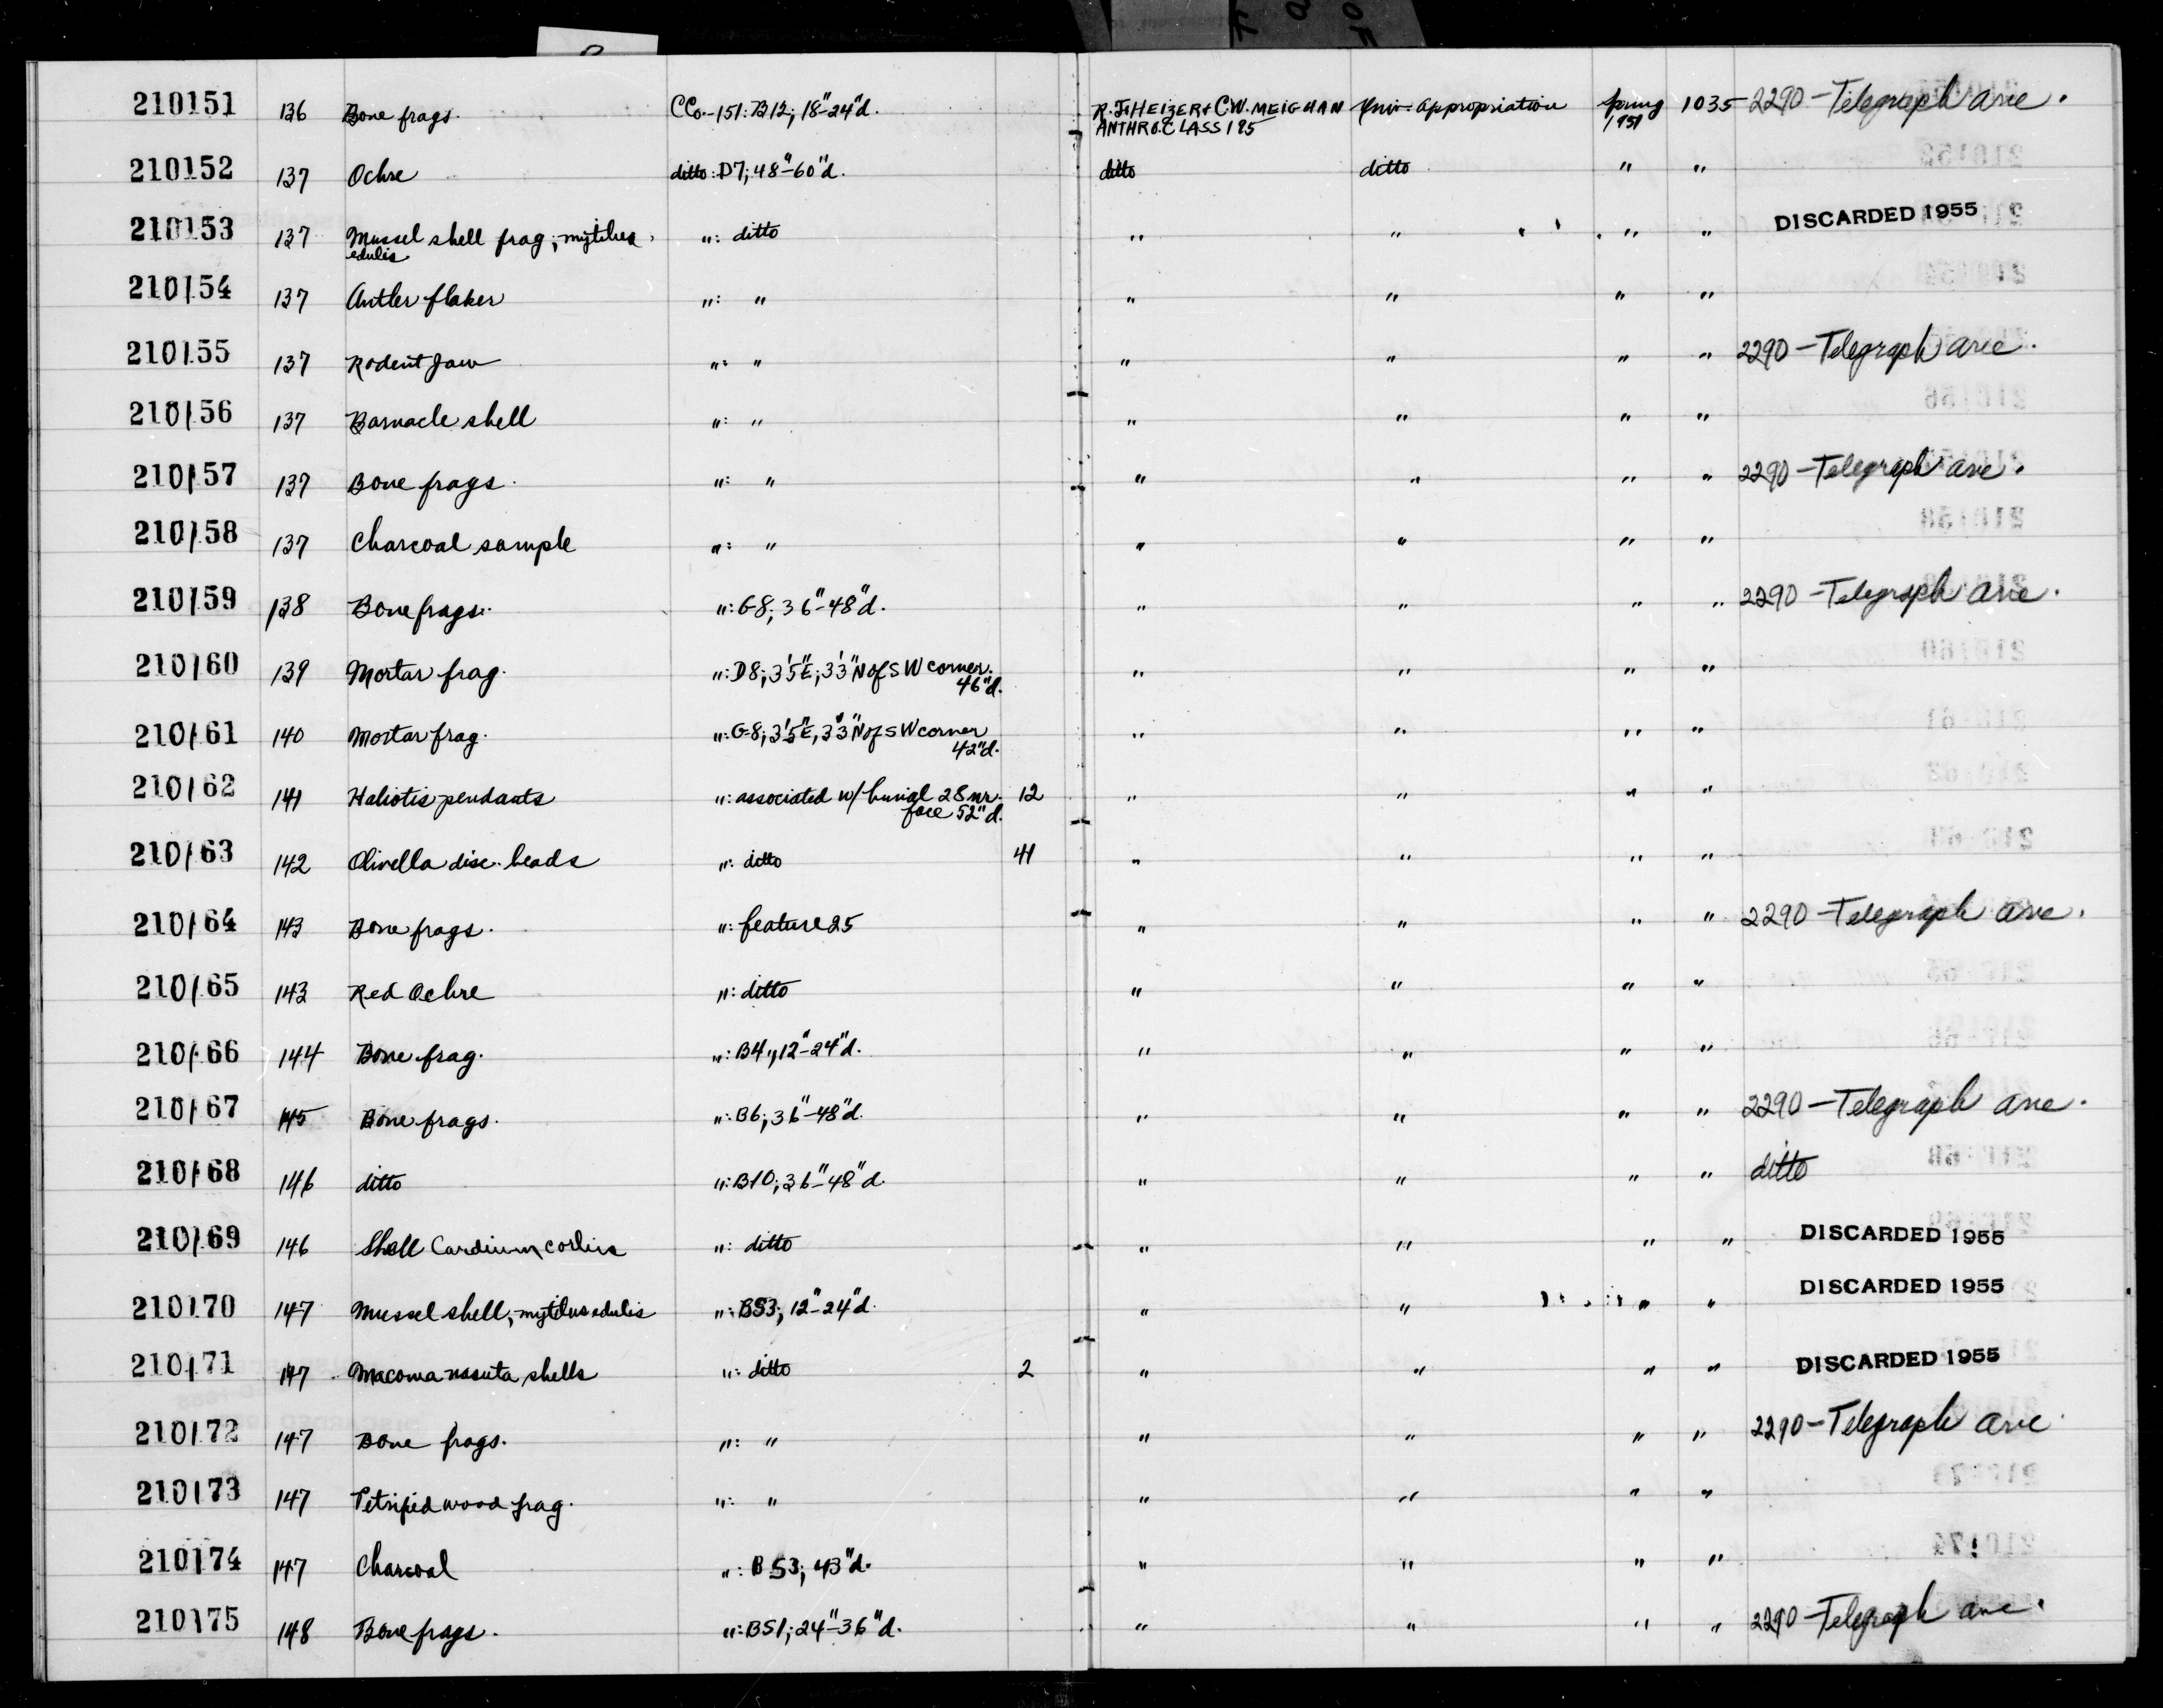 210151 136 Bone frags. CCo.-151: B12; 18"-24"d. R.F. HEIZER & C.W. MEIGHAN Univ. Appropriation Spring 1035 2290-Telegraph Ave.
ANTHRO. CLASS 195 1951
210152 137 Ochre ditto: D7; 48"-60"d. ditto ditto " "
210153 137 Mussel shell frag; mytilus ": ditto " " " " DISCARDED 1955
edulis
210154 137 Antler flaker ": " " " " "
210155 137 Rodent Jaw ": " " " " " 2290-Telegraph Ave.
210156 137 Barnacle shell ": " " " " "
210157 137 Bone frags. ": " " " " " 2290-Telegraph Ave.
210158 137 Charcoal sample ": " " " " "
210159 138 Bone frags. ": G-8; 36"-48"d. " " " " 2290-Telegraph Ave.
210160 139 Mortar frag. ": D8; 3'5"E; 3'3"N of SW corner. " " " "
46"d.
210161 140 Mortar frag. ": G-8; 3'5"E, 3'3"N of SW corner " " " "
42"d.
210162 141 Haliotis pendants ": associated w/ burial 28 nr. 12 " " " "
face 52"d.
210163 142 Olivella disc. beads ": ditto 41 " " " "
210164 143 Bone frags. ": feature 25 " " " " 2290-Telegraph Ave.
210165 143 Red Ochre ": ditto " " " "
210166 144 Bone frag. ": B4; 12"-24"d. " " " "
210167 145 Bone frags. ": B6; 36"-48"d. " " " " 2290-Telegraph Ave.
210168 146 ditto ": B10; 36"-48"d. " " " " ditto
210169 146 Shell Cardium corbis ": ditto " " " " DISCARDED 1955
210170 147 Mussel shell, mytilus edulis ": BS3; 12"-24"d. " " " " DISCARDED 1955
210171 147 Macoma nasuta shells ": ditto 2 " " " " DISCARDED 1955
210172 147 Bone frags. ": " " " " " 2290-Telegraph Ave
210173 147 Petrified wood frag. ": " " " " "
210174 147 Charcoal ": BS3; 43"d. " " " "
210175 148 Bone frags. ": BS1; 24"-36"d. " " " " 2290-Telegraph Ave.